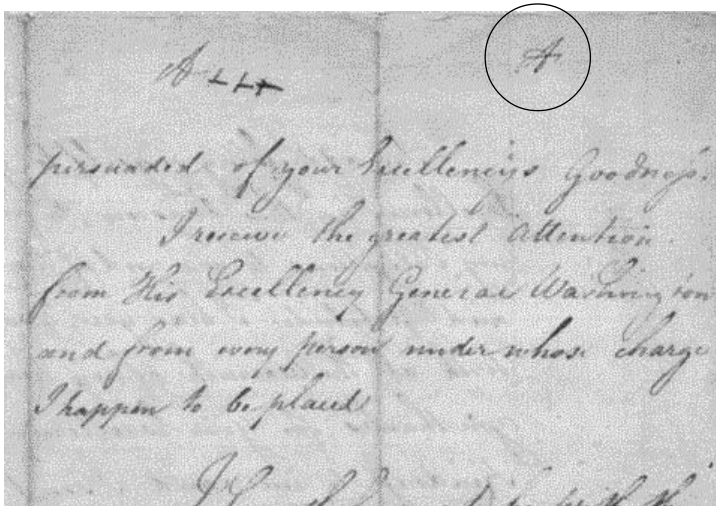 A
A
persuaded of your Excellency's Goodness.
I receive the greatest Attention
from His Excellency General Washington
and from every person under whose charge
I happen to be placed